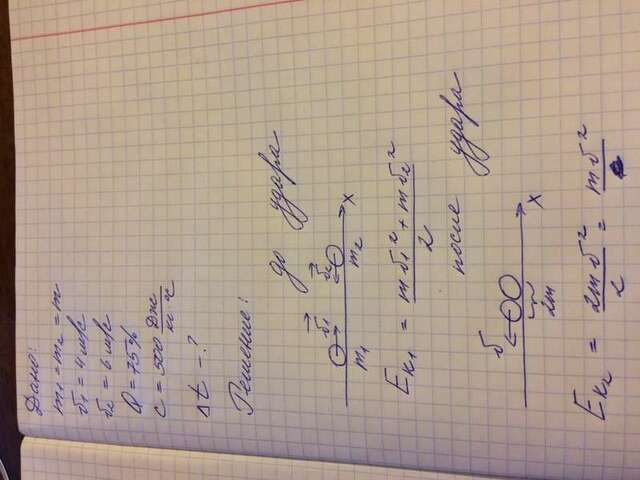 Дано:
m₁ = m₂ = m
υ₁ = 4 м/с
υ₂ = 6 м/с
Q = 75%
c = 500 Дж/кг °C
Δt - ?
Решение:
до удара
υ₁ υ₂
m₁ m₂ x
Eк₁ = (mυ₁² + mυ₂²)/2
после удара
υ
x
2m
Eк₂ = 2mυ²/2 = mυ²